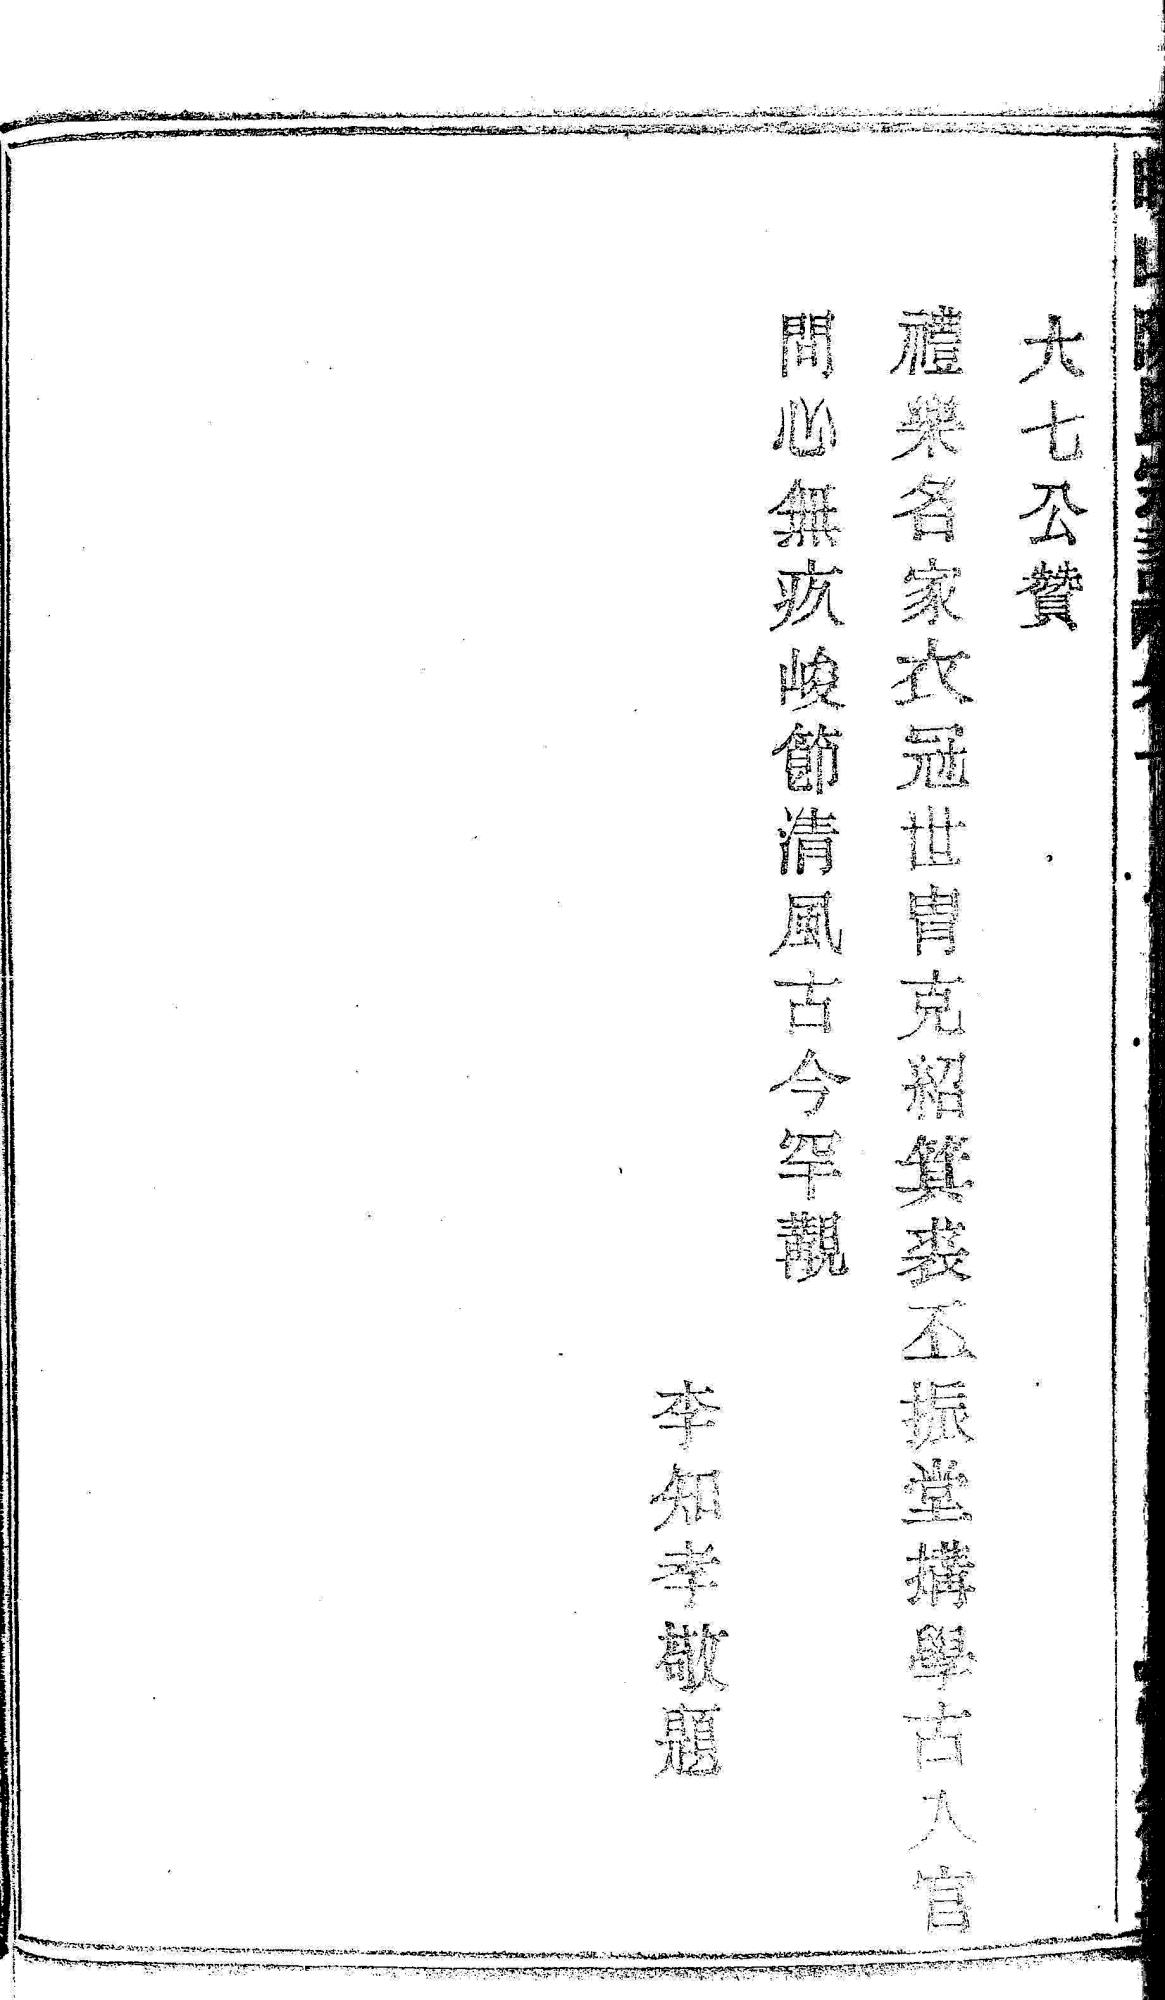 大七公贊
禮樂名家衣冠世胄克紹箕裘丕振堂構學古入官
問心無疚峻節清風古今罕覯
李知孝敬題